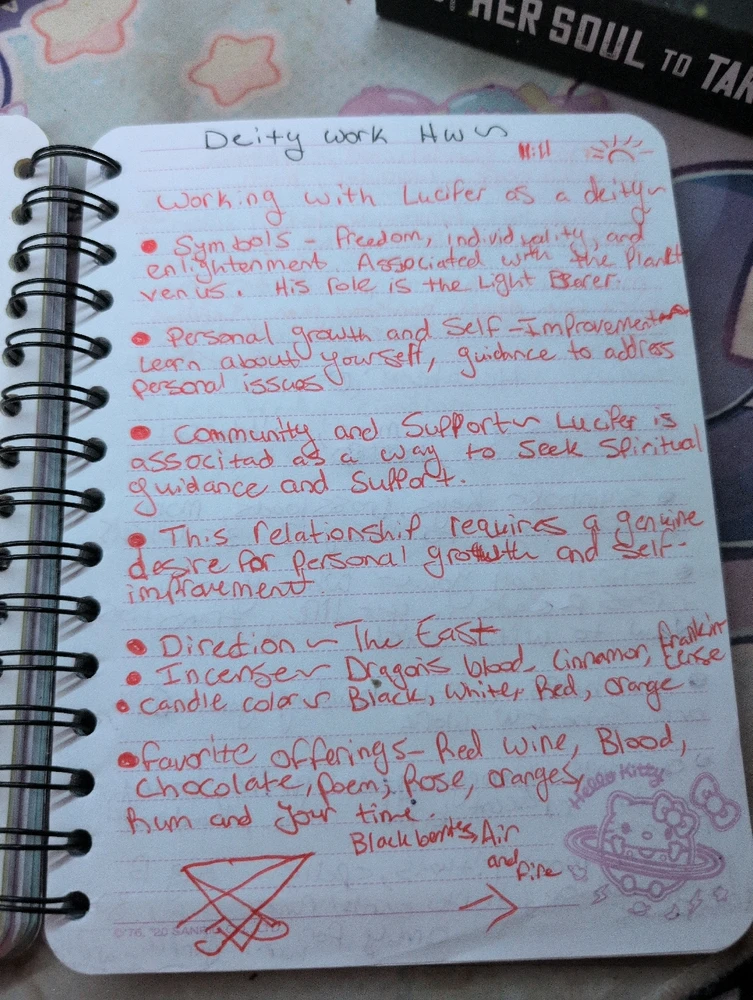 HER SOUL TO TAK
Deity work Hw~
Working with Lucifer as a deity~
• Symbols - freedom, individuality, and
enlightenment. Associated with the Planet
venus. His role is the Light Bearer.
• Personal growth and Self-Improvement~
Learn about yourself, guidance to address
personal issues
• Community and Support~ Lucifer is
associtad as a way to seek Spiritual
guidance and support.
• This relationship requires a genuine
desire for personal growth and self-
improvement.
• Direction ~ The East
• Incense~ Dragons blood, Cinnamon, frankin
cense
• candle color~ Black, white, Red, orange
• favorite offerings- Red wine, Blood,
Chocolate, poems, Rose, oranges,
Rum and your time.
Blackberries, Air
and
fire
Hello Kitty
©'76, '20 SANRIO